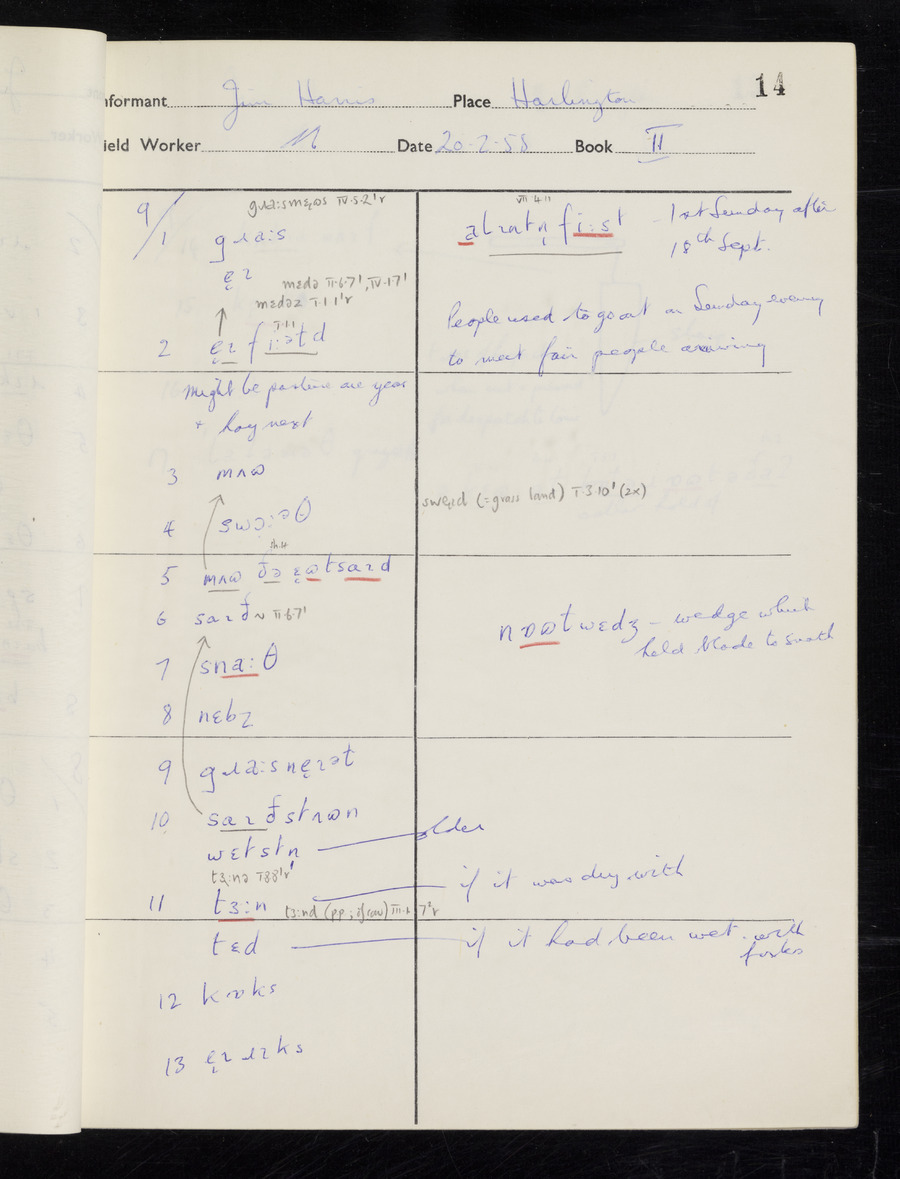 14
nformant Jim Harris Place Harlington
ield Worker Date 20·2·58 Book II
9/1 gɹɑːs
gɹɑːsmɛɪdəs IV·5·2'r
ɛɪ
medə II·6·7', IV·1·7'
medəz I·1·1'r
I·1·1
2 ɛɪ fiːəɫd
might be pasture one year
+ hay next
3 mʌɷ
4 swɔːəθ
5 mʌɷ ðə ɛɷtsaɪd
6 saɪð II·6·7'
7 snɑːθ
8 nɛbz
9 gɹɑːsnɛɪət
10 saɪðstʌɷn
wɛtstn̩
tɜːnə
11 tɜːn tɜːnd (pp.; if raw)
tɛd
12 kɒks
13 ɛɪ ɹɪks
VII·4·11
fiːst - 1st Sunday after
18th Sept.
People used to go out on Sunday evening
to meet fair people arriving
swɛɪd (=grass land) I·3·10' (2x)
nɒɷt wɛdʒ - wedge which
held blade to snath
older
if it was dry with
if it had been wet. with
forks